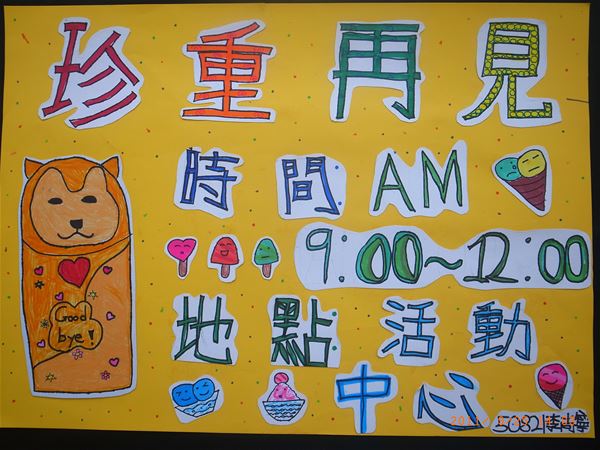 珍重再見
時間:AM
9:00~12:00
地點:活動
中心
Good
bye!